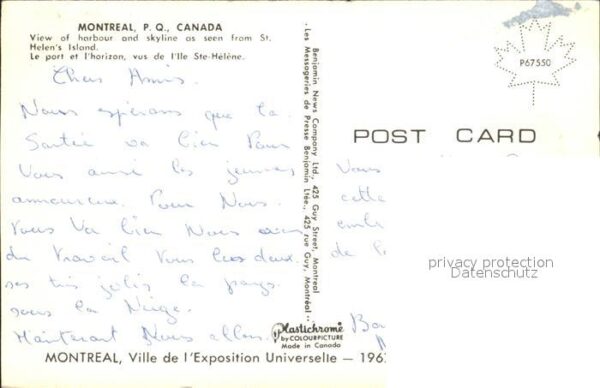 MONTREAL, P. Q., CANADA
View of harbour and skyline as seen from St.
Helen's Island.
Le port et l'horizon, vus de l'Ile Ste-Hélène.
Chers Amis.
Nous espérons que la
Santé va bien Pour
Vous ainsi les jeunes
amoureux. Pour Nous.
tous Va bien Nous avons
du travail tous les deux.
ses tris jolis la pays
sous la Neige.
Maintenant Nous allons
Benjamin News Company Ltd., 425 Guy Street, Montreal
Les Messageries de Presse Benjamin Ltée., 425 rue Guy, Montréal
Plastichrome
by COLOURPICTURE
Made in Canada
P67550
POST CARD
Vous
cette
de
privacy protection
Datenschutz
MONTREAL, Ville de l'Exposition Universelle — 196